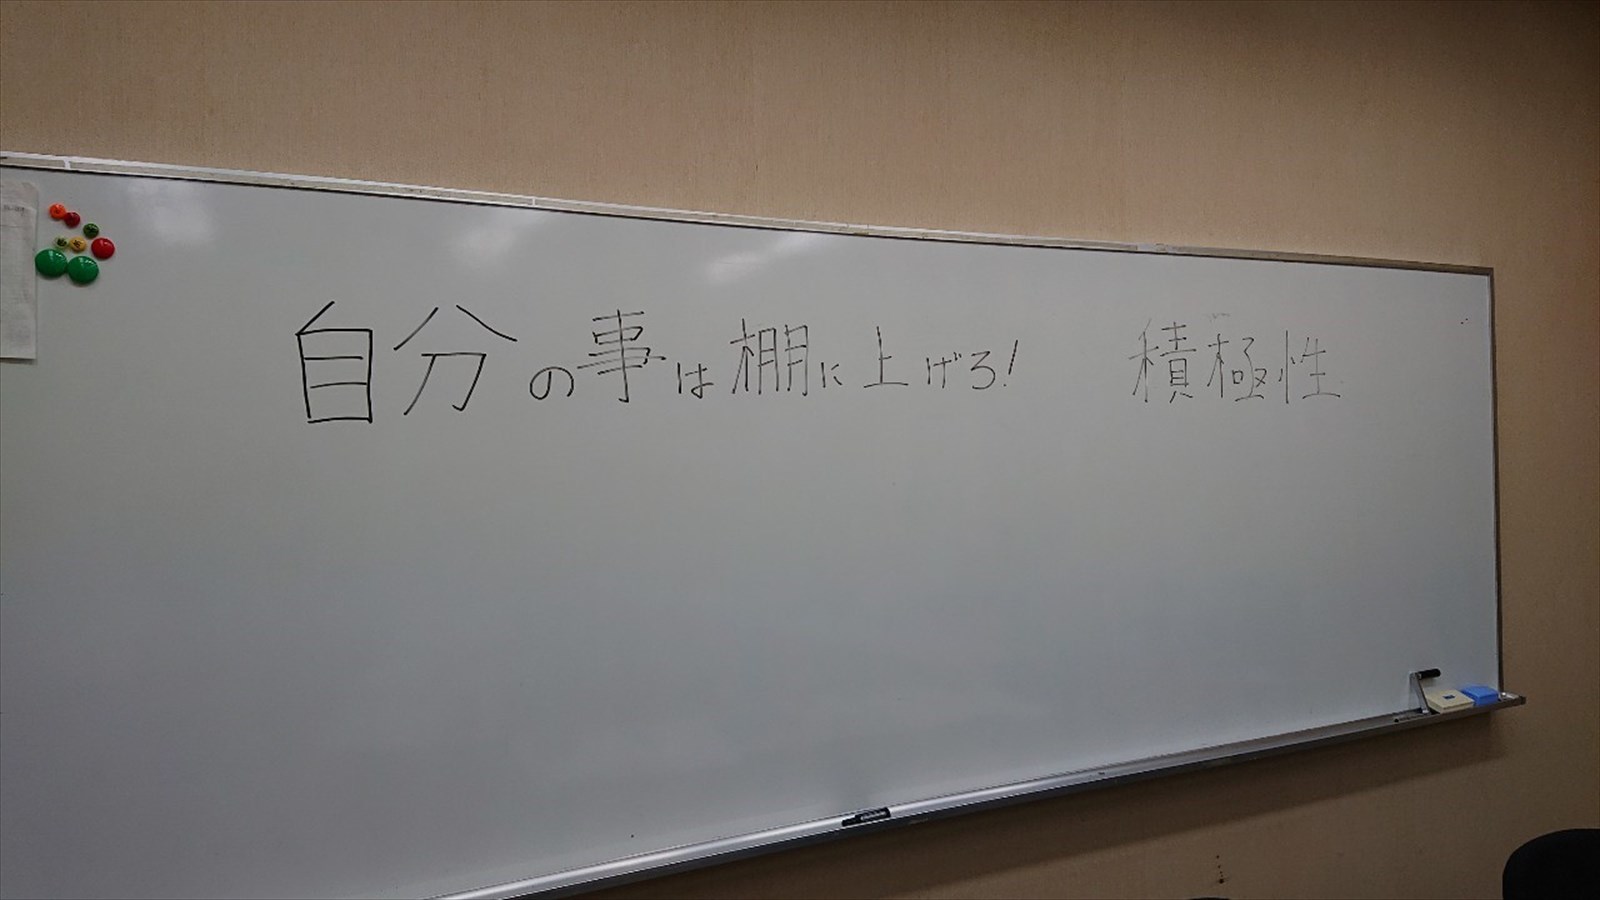 自分の事は棚に上げろ! 積極性